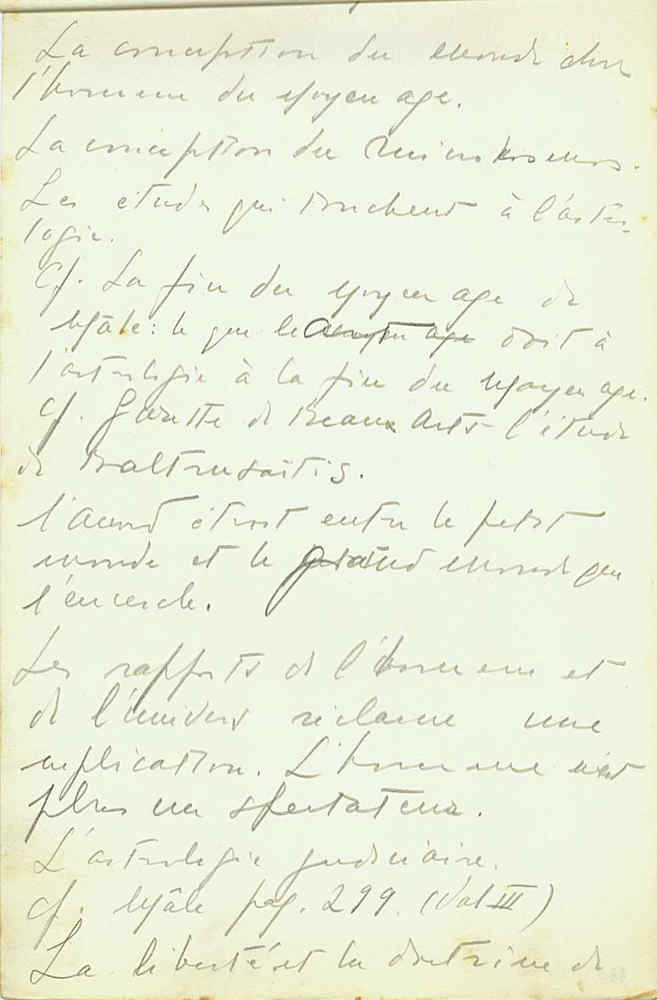 La conception du monde chez
l'homme du Moyen age.
La conception du microkosmos.
Les études qui touchent à l'astro-
logie.
Cf. La fin du Moyen age de
Mâle: le que le moyen age doit à
l'astrologie à la fin du Moyen age.
Cf. Gazette de Beaux Arts l'étude
de Baltrusaitis.
l'accord étroit entre le petit
monde et le grand monde qui
l'encercle.
Les rapports de l'homme et
de l'univers réclame une
explication. L'homme n'est
plus un spectateur.
L'astrologie judiciaire.
cf. Mâle pag. 299. (Vol III)
La liberté et la doctrine de